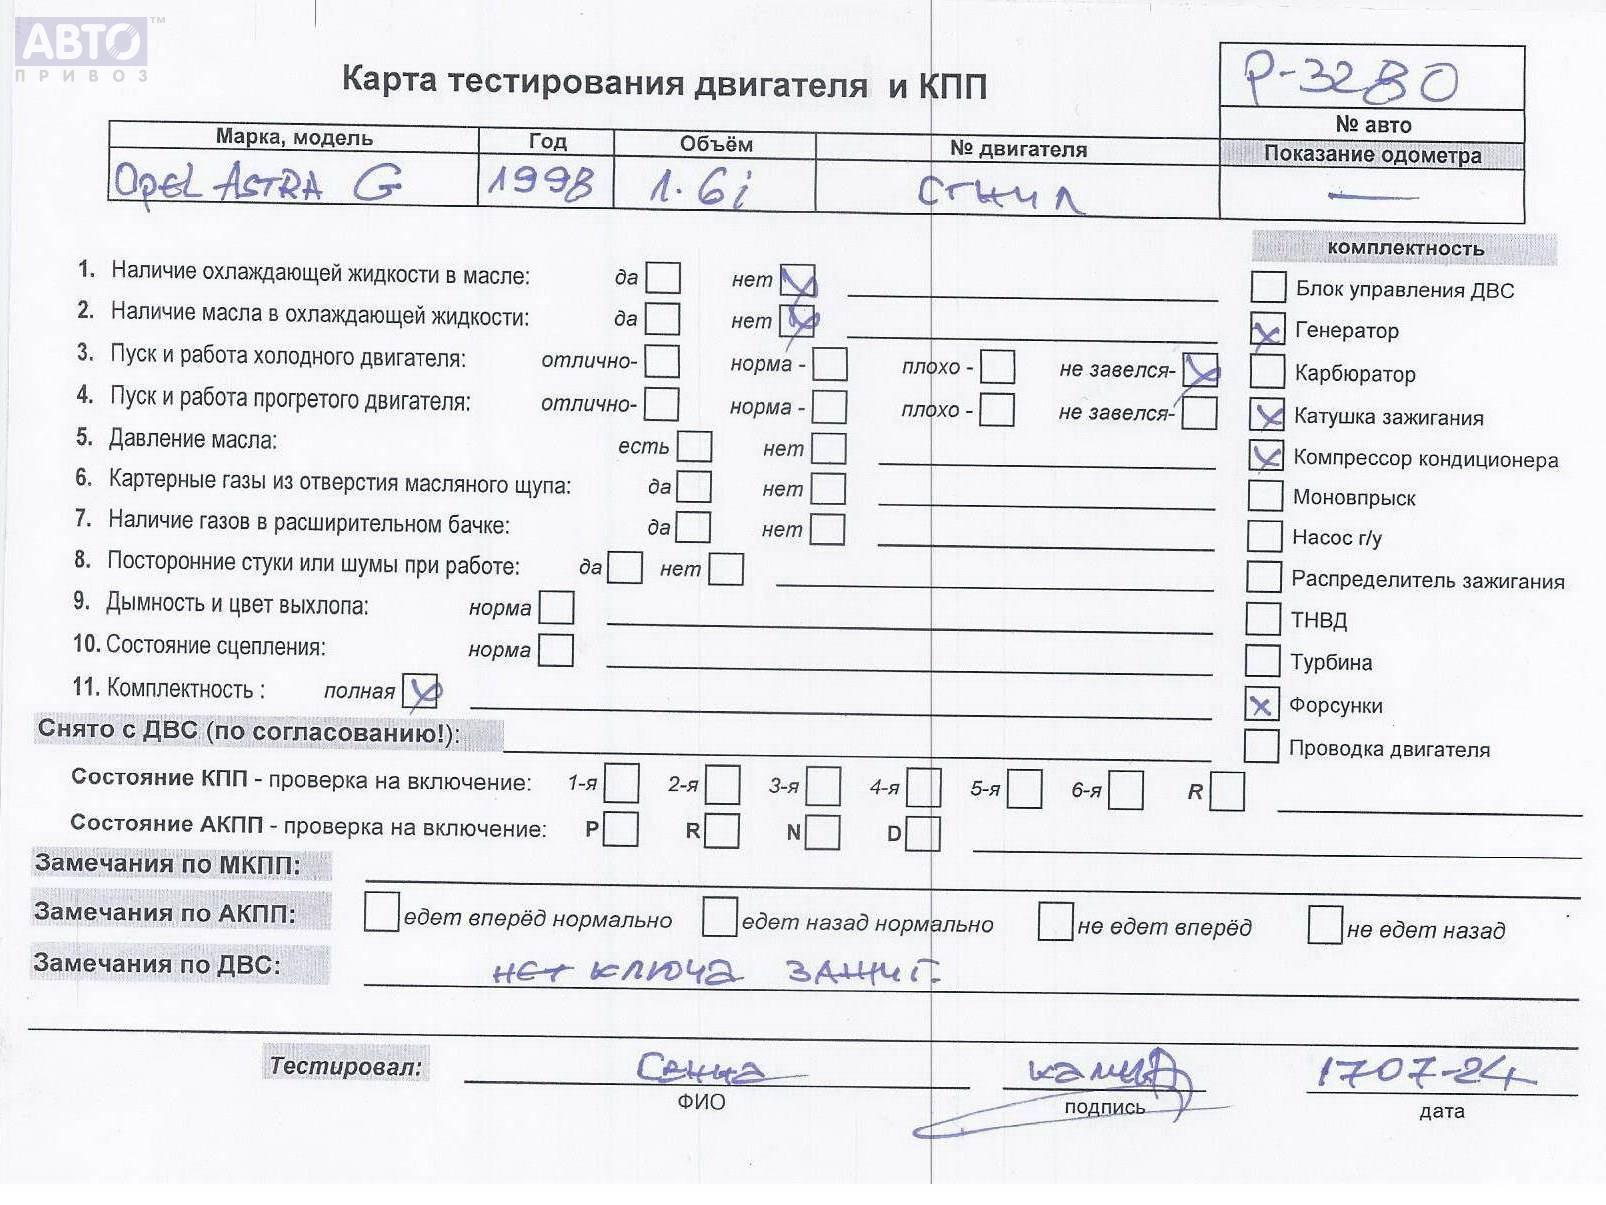 АВТО™
ПРИВОЗ
Карта тестирования двигателя и КПП
P-3280
№ авто
Марка, модель Год Объём № двигателя Показание одометра
OPEL ASTRA G 1998 1.6i СГНИЛ —
комплектность
1. Наличие охлаждающей жидкости в масле: да нет
Блок управления ДВС
2. Наличие масла в охлаждающей жидкости: да нет
Генератор
3. Пуск и работа холодного двигателя: отлично- норма - плохо - не завелся-
Карбюратор
4. Пуск и работа прогретого двигателя: отлично- норма - плохо - не завелся-
Катушка зажигания
5. Давление масла: есть нет
Компрессор кондиционера
6. Картерные газы из отверстия масляного щупа: да нет
Моновпрыск
7. Наличие газов в расширительном бачке: да нет
Насос г/у
8. Посторонние стуки или шумы при работе: да нет
Распределитель зажигания
9. Дымность и цвет выхлопа: норма
ТНВД
10. Состояние сцепления: норма
Турбина
11. Комплектность : полная
Форсунки
Снято с ДВС (по согласованию!):
Проводка двигателя
Состояние КПП - проверка на включение: 1-я 2-я 3-я 4-я 5-я 6-я R
Состояние АКПП - проверка на включение: P R N D
Замечания по МКПП:
Замечания по АКПП: едет вперёд нормально едет назад нормально не едет вперёд не едет назад
Замечания по ДВС: нет ключа зажиг.
Тестировал: 1707-24
ФИО подпись дата